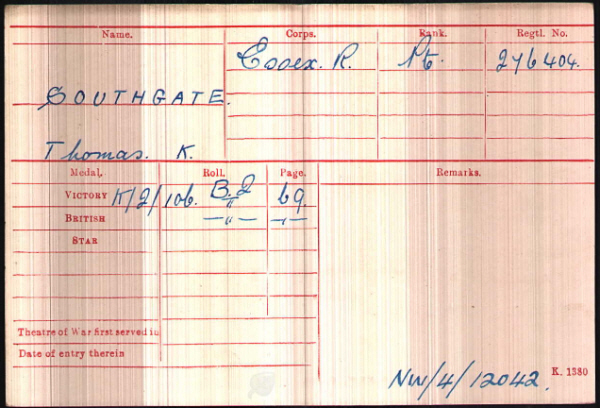 Name. Corps. Rank. Regtl. No.
Essex. R. Pt. 276404.
SOUTHGATE.
Thomas. K.
Medal. Roll. Page. Remarks.
VICTORY K/2/106. B.2 69.
BRITISH —〃— —〃—
STAR
Theatre of War first served in
Date of entry therein
NW/4/12042. K. 1380